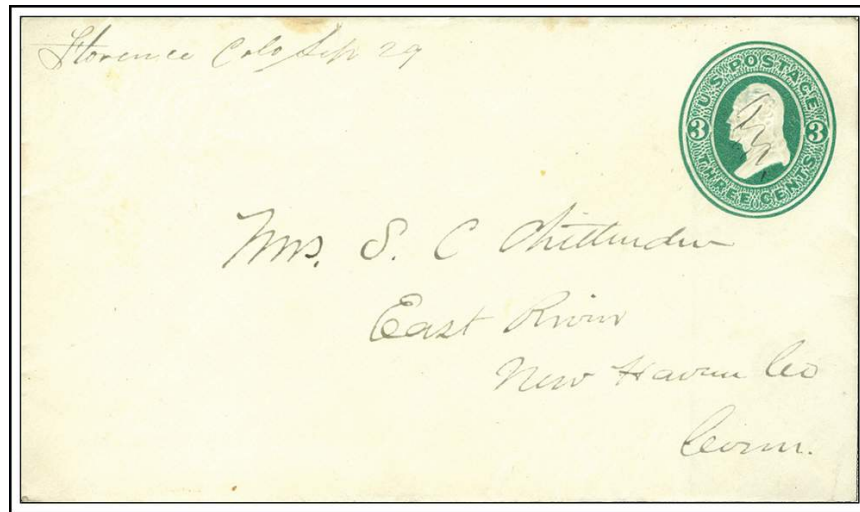 Florence Colo Sep 29
U.S. POSTAGE
3 3
THREE CENTS
Mrs. S. C Chittenden
East River
New Haven Co
Conn.